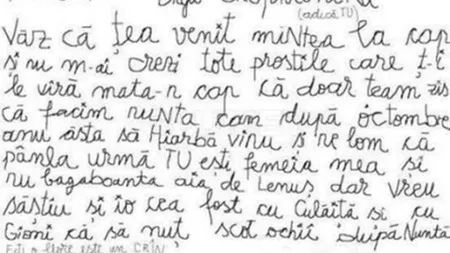 (adică TU)
Văz că țea venit miNtea la cap
și nu m-ai crezi tote prostile care ț-i
le viră mata-n cap că doar team zis
că facim nuNta cam după octombre
anu ăsta să Hiarbă vinu și ne lom că
pânla urmă TU ești femeia mea și
nu bagaboanta aia de Lenuș dar vreu
să știu și io cea fost cu Culaită si cu
Gioni că să nuț scot ochii duipă Nuntă